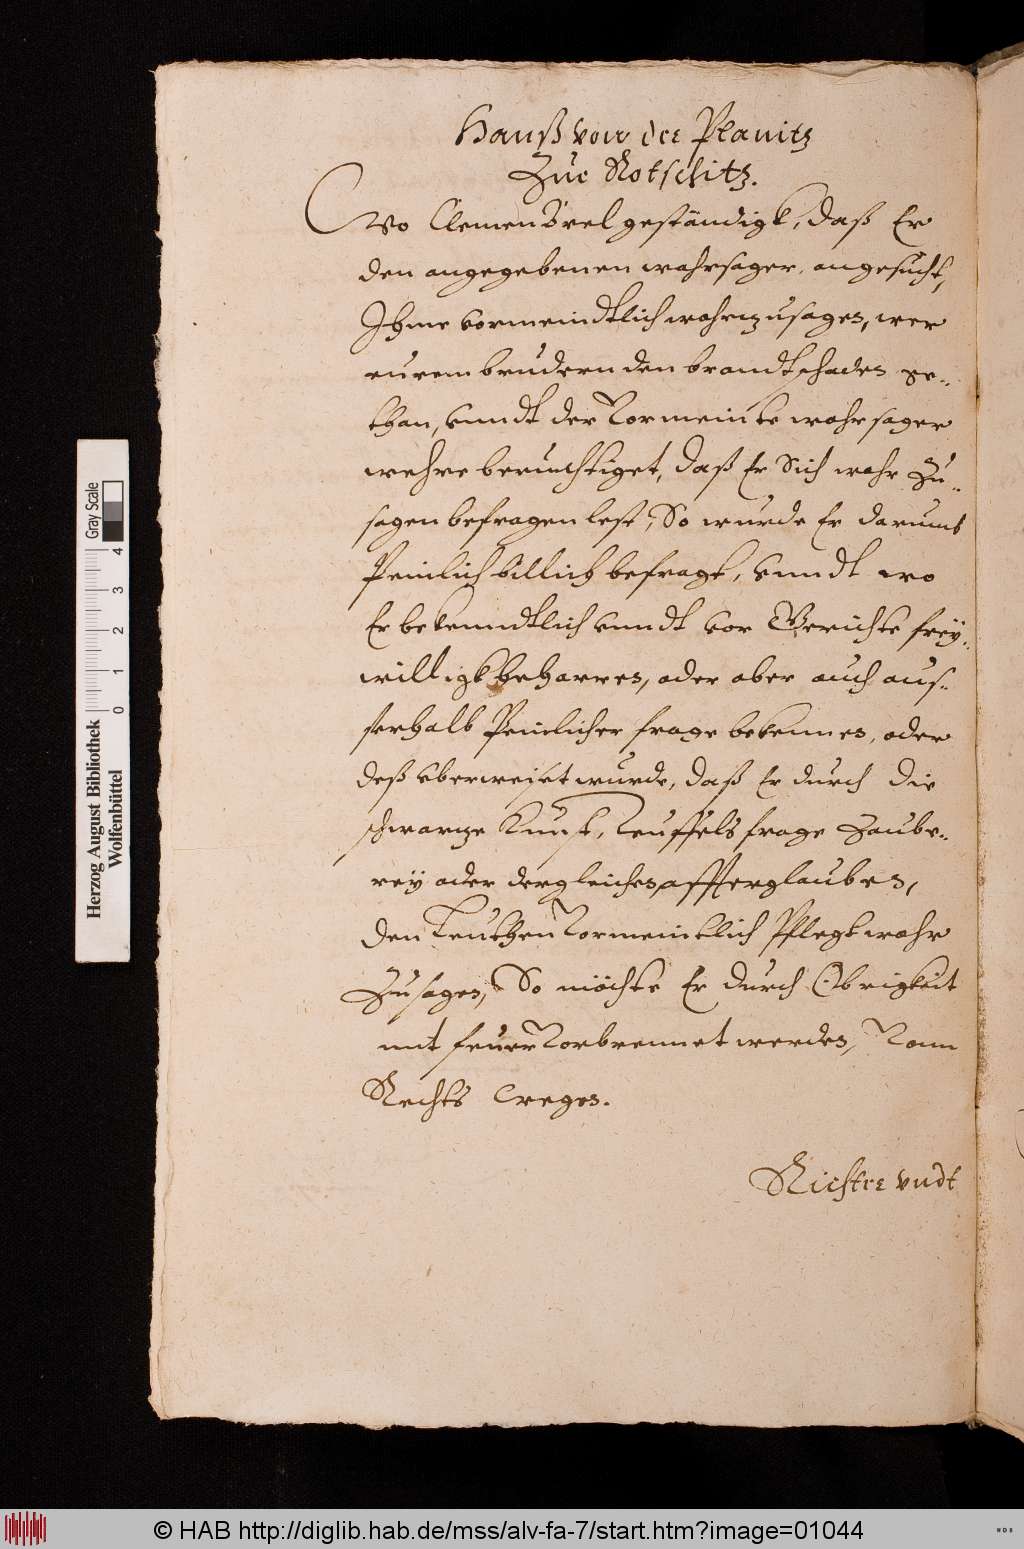 Hanß von der Planitz
Zue Rotschitz.
Wo Clemen Örel geständigk, daß Er
den angegebenen wahrsager, angesucht,
Ihme vormeindtlich wahrzusagen, wer
eurem brudern den brandtschaden ge-
than, vnndt der Vormeinte wahrsager
wehre beruchtiget, daß Er Sich wahr Zu-
sagen befragen lest, So wurde Er darumb
Peinlich billich befragt, vnndt wo
Er bekenndtlich vnndt vor Gerichte frey-
willigk beharren, oder aber auch aus-
serhalb Peinlicher frage bekennen, oder
deß vberweiset wurde, daß Er durch die
schwarze Kunst, Teuffels frage Zaube-
rey oder dergleichen affterglauben,
den Leuthen Vormeintlich Pflegt wahr
Zusagen, So möchte Er durch Obrigkeit
mit feuer Vorbrennet werden, Vonn
Rechts wegen.
Richter vndt
Herzog August Bibliothek
Wolfenbüttel
0 1 2 3 4
Gray Scale
© HAB http://diglib.hab.de/mss/alv-fa-7/start.htm?image=01044